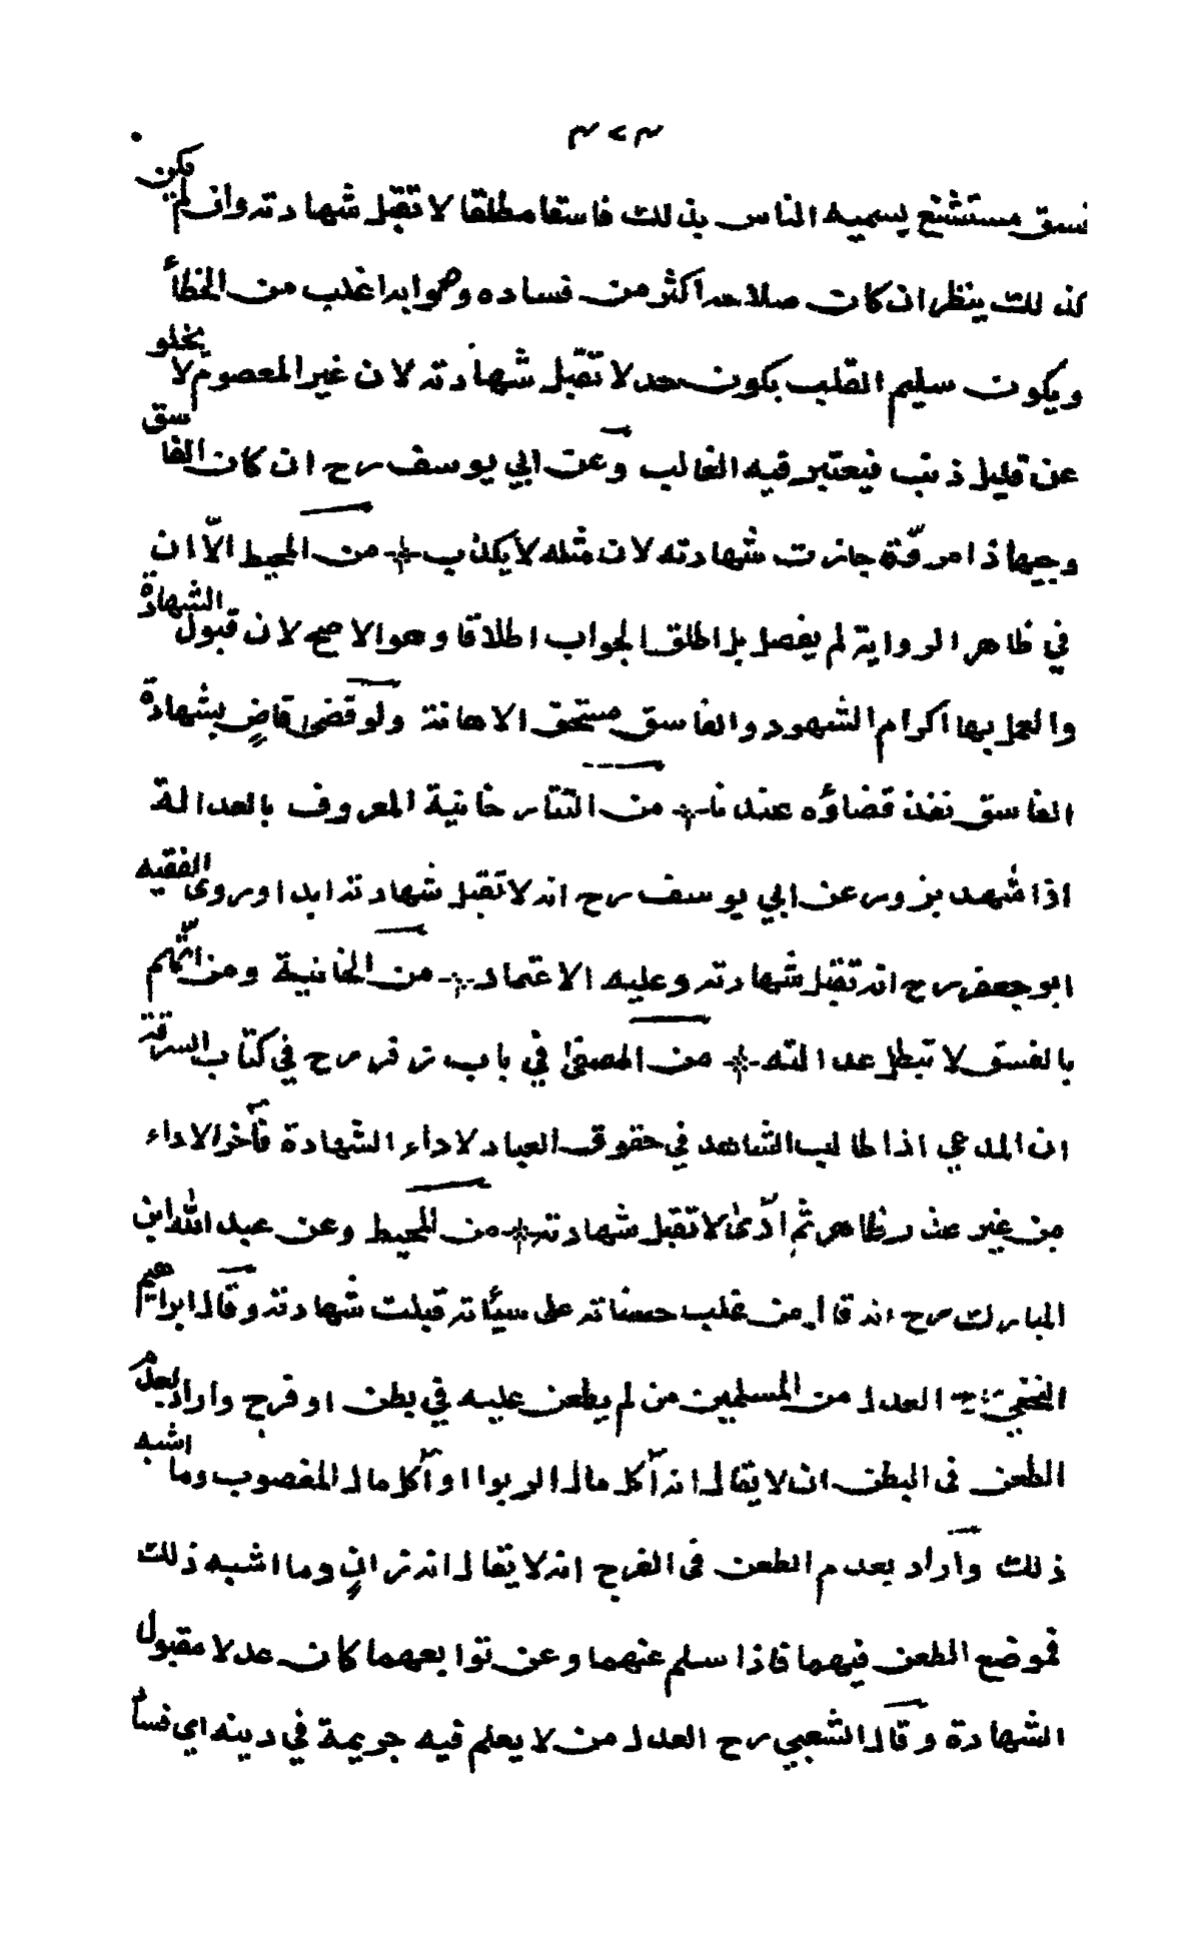 ٣٢٣
فسق مستشنع يسميه الناس بذلك فاسقا مطلقا لا تقبل شهادته وان لم يكن
كذلك ينظر ان كان صلاحه اكثر من فساده وصوابه اغلب من الخطأ
ويكون سليم القلب يكون عدلا تقبل شهادته لان غير المعصوم لا يخلو
عن قليل ذنب فيعتبر فيه الغالب وعن ابي يوسف رح ان كان الفاسق
وجيها ذا مروّة جازت شهادته لان مثله لا يكذب من المحيط الّا ان
في ظاهر الرواية لم يفصل بل اطلق الجواب اطلاقا وهو الاصح لان قبول الشهادة
والعمل بها اكرام الشهود والفاسق مستحق الاهانة ولو قضى قاضٍ بشهادة
الفاسق نفذ قضاؤه عندنا من التتار خانية المعروف بالعدالة
اذا شهد بزور عن ابي يوسف رح انه لا تقبل شهادته ابدا وروى الفقيه
ابو جعفر رح انه تقبل شهادته وعليه الاعتماد من الخانية ومن اتّهم
بالفسق لا تبطل عدالته من المصفى في باب زفر رح في كتاب السرقة
ان المدعي اذا طالب الشاهد في حقوق العباد لاداء الشهادة فأخر الاداء
من غير عذر ظاهر ثم ادّى لا تقبل شهادته من المحيط وعن عبد الله ابن
المبارك رح انه قال من غلب حسناته على سيئاته قبلت شهادته وقال ابراهيم
النخعي رح العدل من المسلمين من لم يطعن عليه في بطن او فرج واراد بعدم
الطعن فى البطن ان لا يقال انه آكل مال الربوا او آكل مال المغصوب وما اشبه
ذلك واراد بعدم الطعن فى الفرج انه لا يقال انه زانٍ وما اشبه ذلك
فموضع الطعن فيهما فاذا سلم عنهما وعن توابعهما كان عدلا مقبول
الشهادة وقال الشعبي رح العدل من لا يعلم فيه جريمة في دينه اي فسا